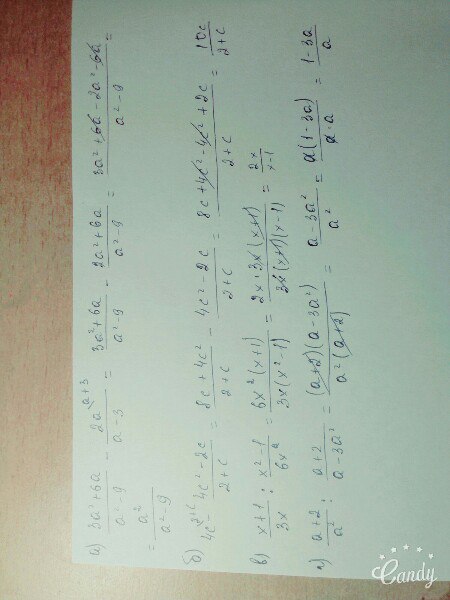 а) (3a²+6a)/(a²-9) - (2a^(a+3))/(a-3) = (3a²+6a)/(a²-9) - (2a²+6a)/(a²-9) = (3a²+6a-2a²-6a)/(a²-9) =
= a²/(a²-9)
б) 4c^(2+c) - (4c²-2c)/(2+c) = (8c+4c²)/(2+c) - (4c²-2c)/(2+c) = (8c+4c²-4c²+2c)/(2+c) = 10c/(2+c)
в) (x+1)/(3x) : (x²-1)/(6x²) = (6x²(x+1))/(3x(x²-1)) = (2x·3x(x+1))/(3x(x+1)(x-1)) = 2x/(x-1)
г) (a+2)/a² : (a+2)/(a-3a²) = ((a+2)(a-3a²))/(a²(a+2)) = (a-3a²)/a² = (a(1-3a))/(a·a) = (1-3a)/a
Candy